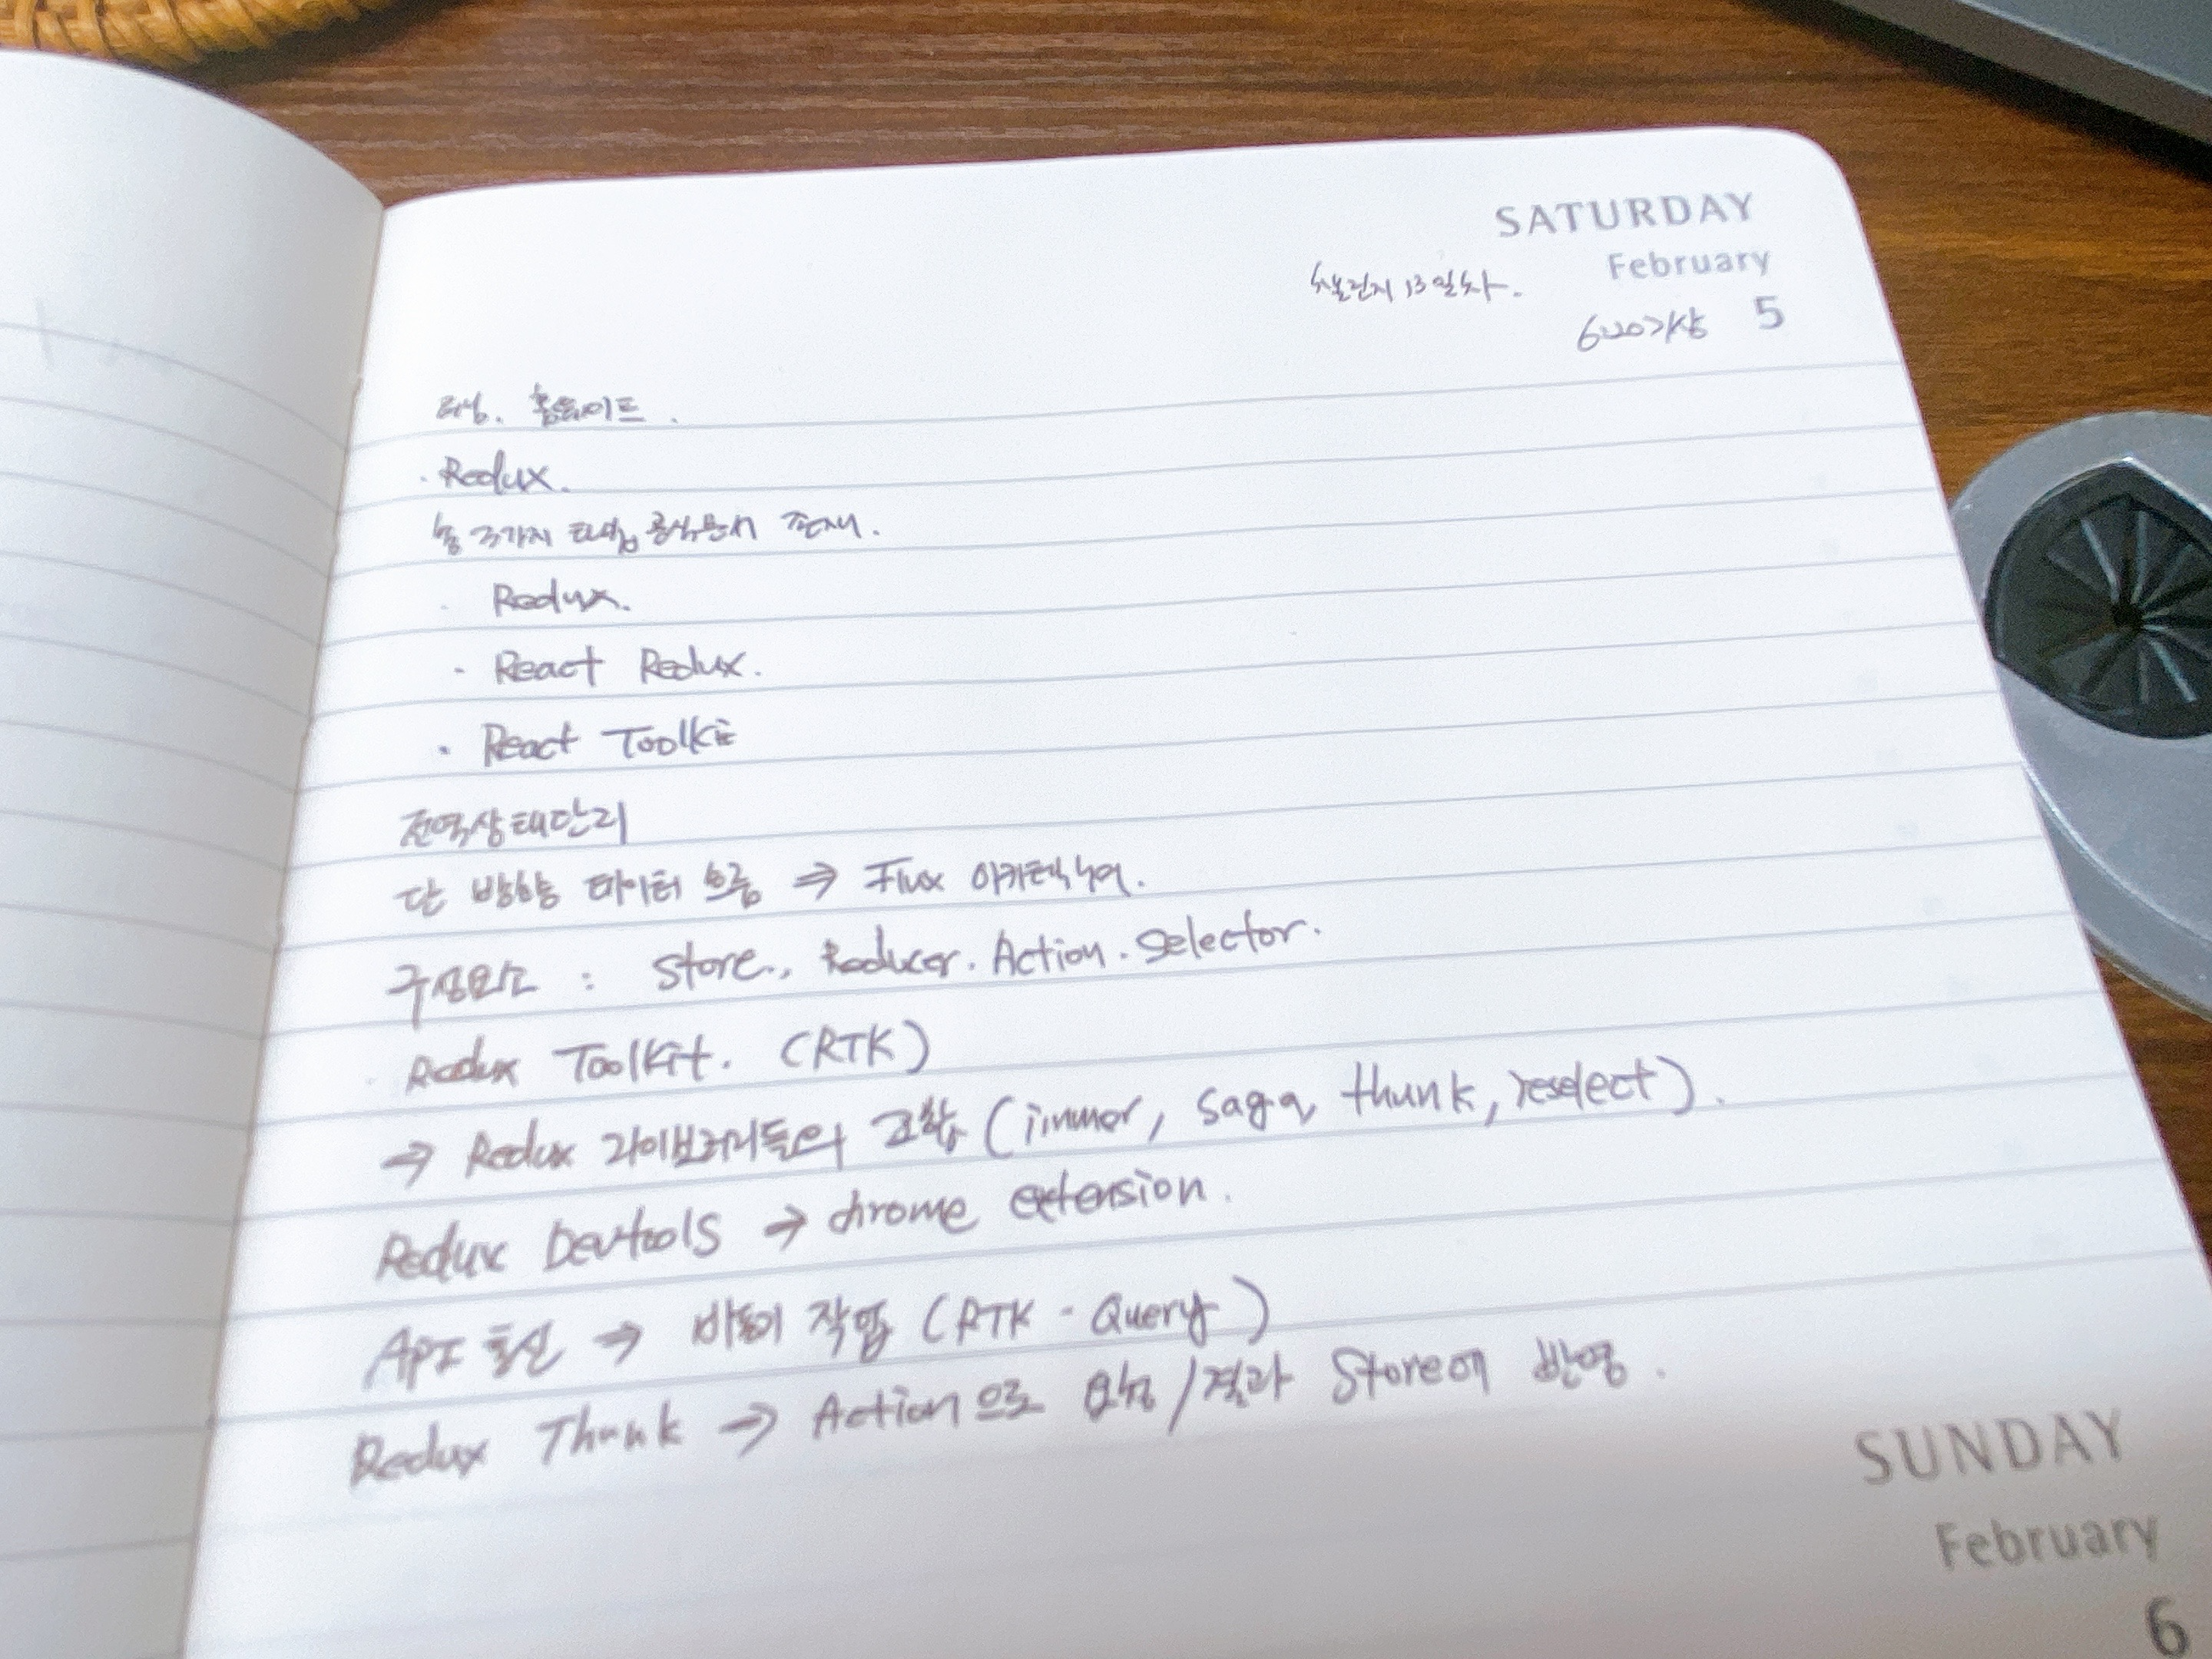 SATURDAY
February
챌린지 13일차.
6:20 기상 5
러닝. 홈트레이드.
· Redux.
총 3가지 타입 공식문서 존재.
· Redux.
· React Redux.
· React Toolkit
전역상태관리
단 방향 데이터 흐름 ⇒ Flux 아키텍쳐.
구성요소 : Store., Reducer. Action. Selector.
Redux Toolkit. (RTK)
→ Redux 라이브러리들의 조합 (immer, saga, thunk, reselect).
Redux Devtools → chrome extension.
API 통신 → 비동기 작업 (RTK - Query)
Redux Thunk → Action으로 요청 / 결과 Store에 반영.
SUNDAY
February
6